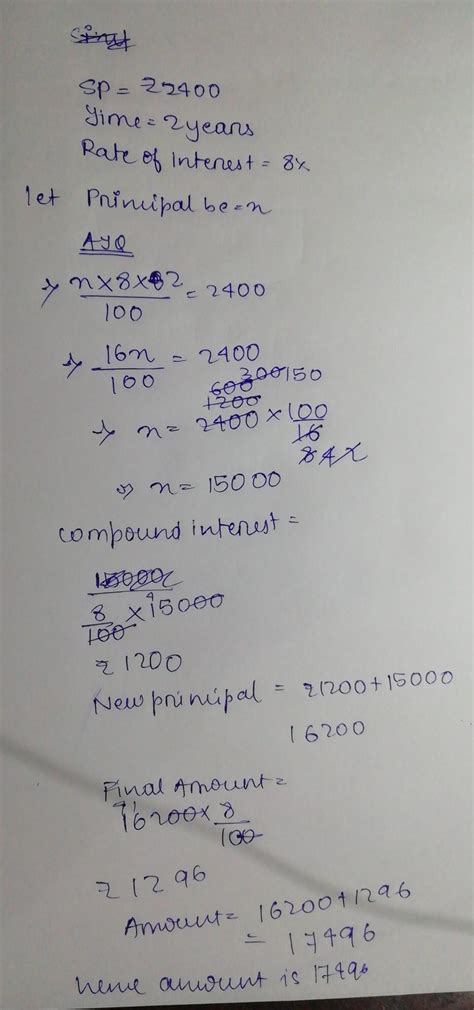 SP = ₹2400
Time = 2 years
Rate of interest = 8%
let Principal be = x
ATQ
⇒ x × 8 × 2 / 100 = 2400
⇒ 16x / 100 = 2400
600 300 150
1200
⇒ x = 2400 × 100 / 16
8 4 2
⇒ x = 15000
Compound interest =
15000
8 / 100 × 15000
₹1200
New principal = ₹1200 + 15000
16200
Final Amount =
16200 × 8 / 100
₹1296
Amount = 16200 + 1296
= 17496
hence amount is 17496